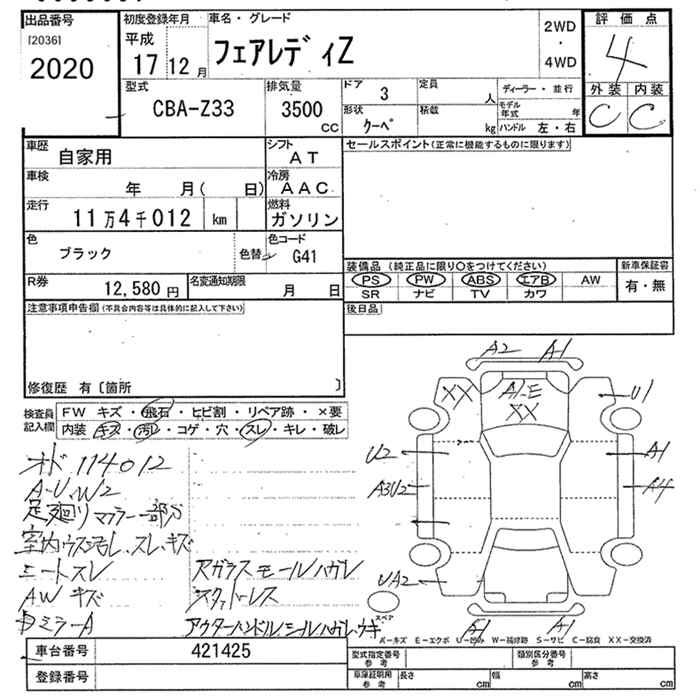 出品番号
[2036]
2020
初度登録年月
平成
17 12 月
車名・グレード
フェアレディZ
2WD
・
4WD
評価点
4
外装 内装
C C
型式
CBA-Z33
排気量
3500
CC
ドア 3
形状
クーペ
定員
人
積載
kg
ディーラー・並行
モデル年式 年
ハンドル 左・右
車歴
自家用
シフト
AT
車検
年 月( 日)
冷房
AAC
走行
11万4千012 km
燃料
ガソリン
色
ブラック
色替
色コード
G41
R券
12,580 円
名変通知期限
月 日
セールスポイント(正常に機能するものに限ります)
装備品 (純正品に限り○をつけてください)
PS PW ABS エアB AW
SR ナビ TV カワ
新車保証書
有・無
後日品
注意事項申告欄(不具合内容等は具体的に記入して下さい)
修復歴 有〔箇所 〕
検査員記入欄
FW キズ・飛石・ヒビ割・リペア跡・×要
内装 キズ・汚レ・コゲ・穴・スレ・キレ・破レ
オド 114012
A-U、W2
足廻リ マフラー一部サビ
室内ウス汚レ、スレ、キズ
シートスレ
AW キズ
ミラーA
Rガラスモールハガレ
スペアレス
アウターハンドルシールハガレ、ウキ
A2 A1
XX
A1-E
XX
U1
U2
A1
A3U2
A4
UA2
A1 A1
スペア
A-キズ E-エクボ U-凹み W-補修跡 S-サビ C-腐食 XX-交換済
車台番号
421425
登録番号
型式指定番号
参考
類別区分番号
参考
車庫証明用
参考
長さ cm
幅 cm
高さ cm